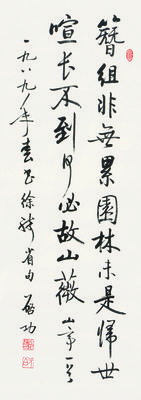 簪组非无累园林未是归世
喧长不到何必故山薇山辛一首
一九八九年春书徐祯卿句 启功